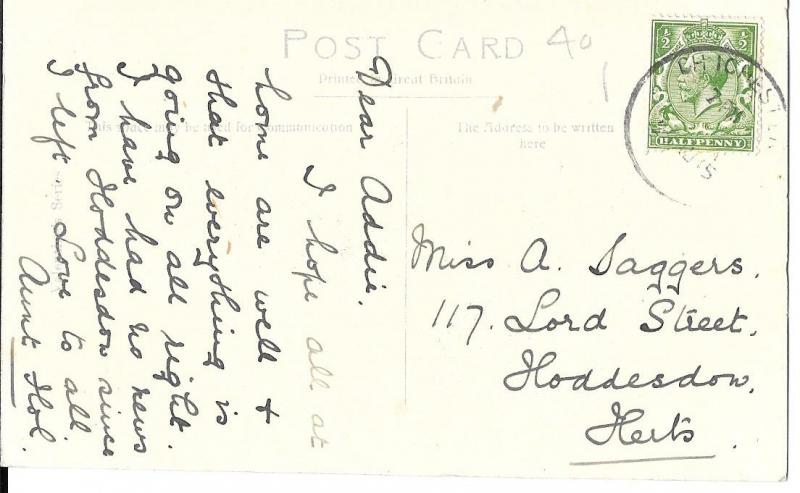 POST CARD 40
Printed in Great Britain
This space may be used for communication
The Address to be written
here
½ ½
HALFPENNY
CHICHESTER
Dear Addie,
I hope all at
home are well &
that everything is
going on all right.
I have had no news
from Hoddesdon since
I left. Love to all.
Aunt Flo.
Miss A. Saggers,
117. Lord Street,
Hoddesdon,
Herts.